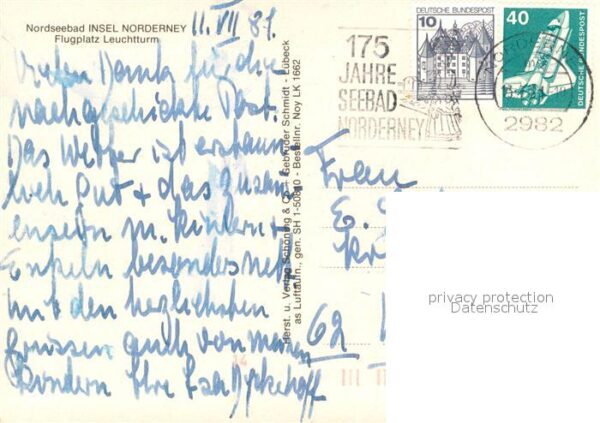 Nordseebad INSEL NORDERNEY
Flugplatz Leuchtturm
11. VII 81.
Vielen Dank für die
nachgeschickte Post.
Das Wetter ist erstaun
lich gut + das Zusam
ensein m. Kindern +
Enkeln besonders nett
mit den herzlichsten
Grüssen auch von meinen
Kindern Ihre
Herst. u. Verlag Schöning & Co. - Gebrüder Schmidt - Lübeck
as Luftaufn., gen. SH 1-50810 - Bestellnr. Noy LK 1662
175
JAHRE
SEEBAD
NORDERNEY
10 DEUTSCHE BUNDESPOST
40
DEUTSCHE BUNDESPOST
2982
Frau
E.
62
privacy protection
Datenschutz